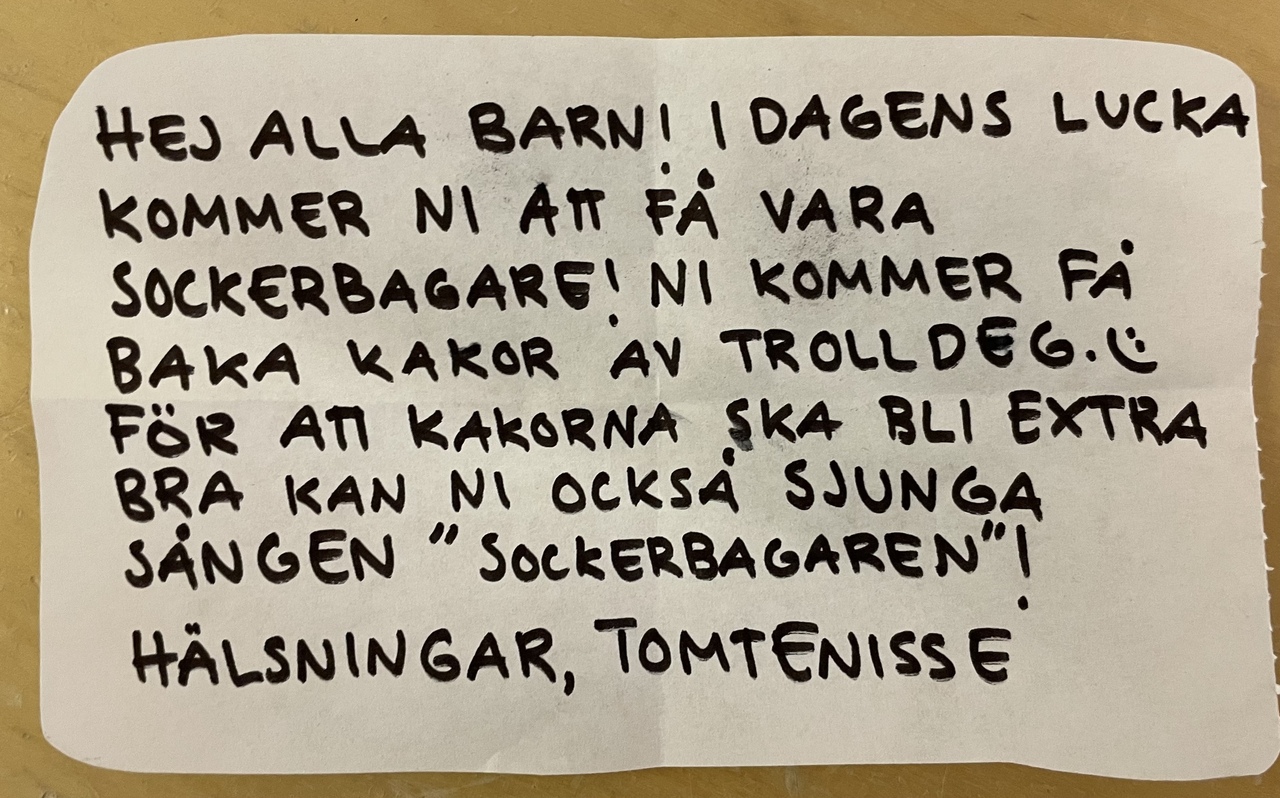 HEJ ALLA BARN! I DAGENS LUCKA
KOMMER NI ATT FÅ VARA
SOCKERBAGARE! NI KOMMER FÅ
BAKA KAKOR AV TROLLDEG. :)
FÖR ATT KAKORNA SKA BLI EXTRA
BRA KAN NI OCKSÅ SJUNGA
SÅNGEN "SOCKERBAGAREN"!
HÄLSNINGAR, TOMTENISSE